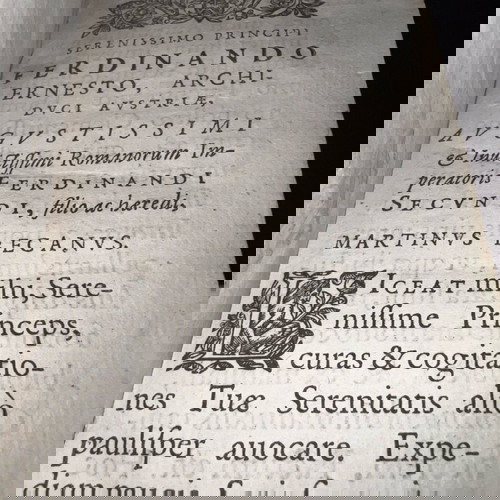 SERENISSIMO PRINCIPI
FERDINANDO
ERNESTO, ARCHI-
DVCI AVSTRIÆ,
AVGVSTISSIMI
& Inuictissimi Romanorum Im-
peratoris FERDINANDI
SECVNDI, filio ac haeredi,
MARTINVS BECANVS.
LICEAT mihi, Sere-
nissime Princeps,
curas & cogitatio-
nes Tuæ Serenitatis aliò
paulisper auocare. Expe-